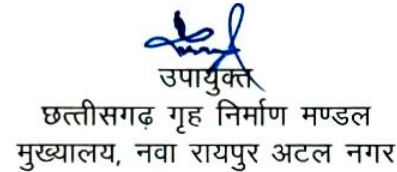 उपायुक्त
छत्तीसगढ़ गृह निर्माण मण्डल
मुख्यालय, नवा रायपुर अटल नगर